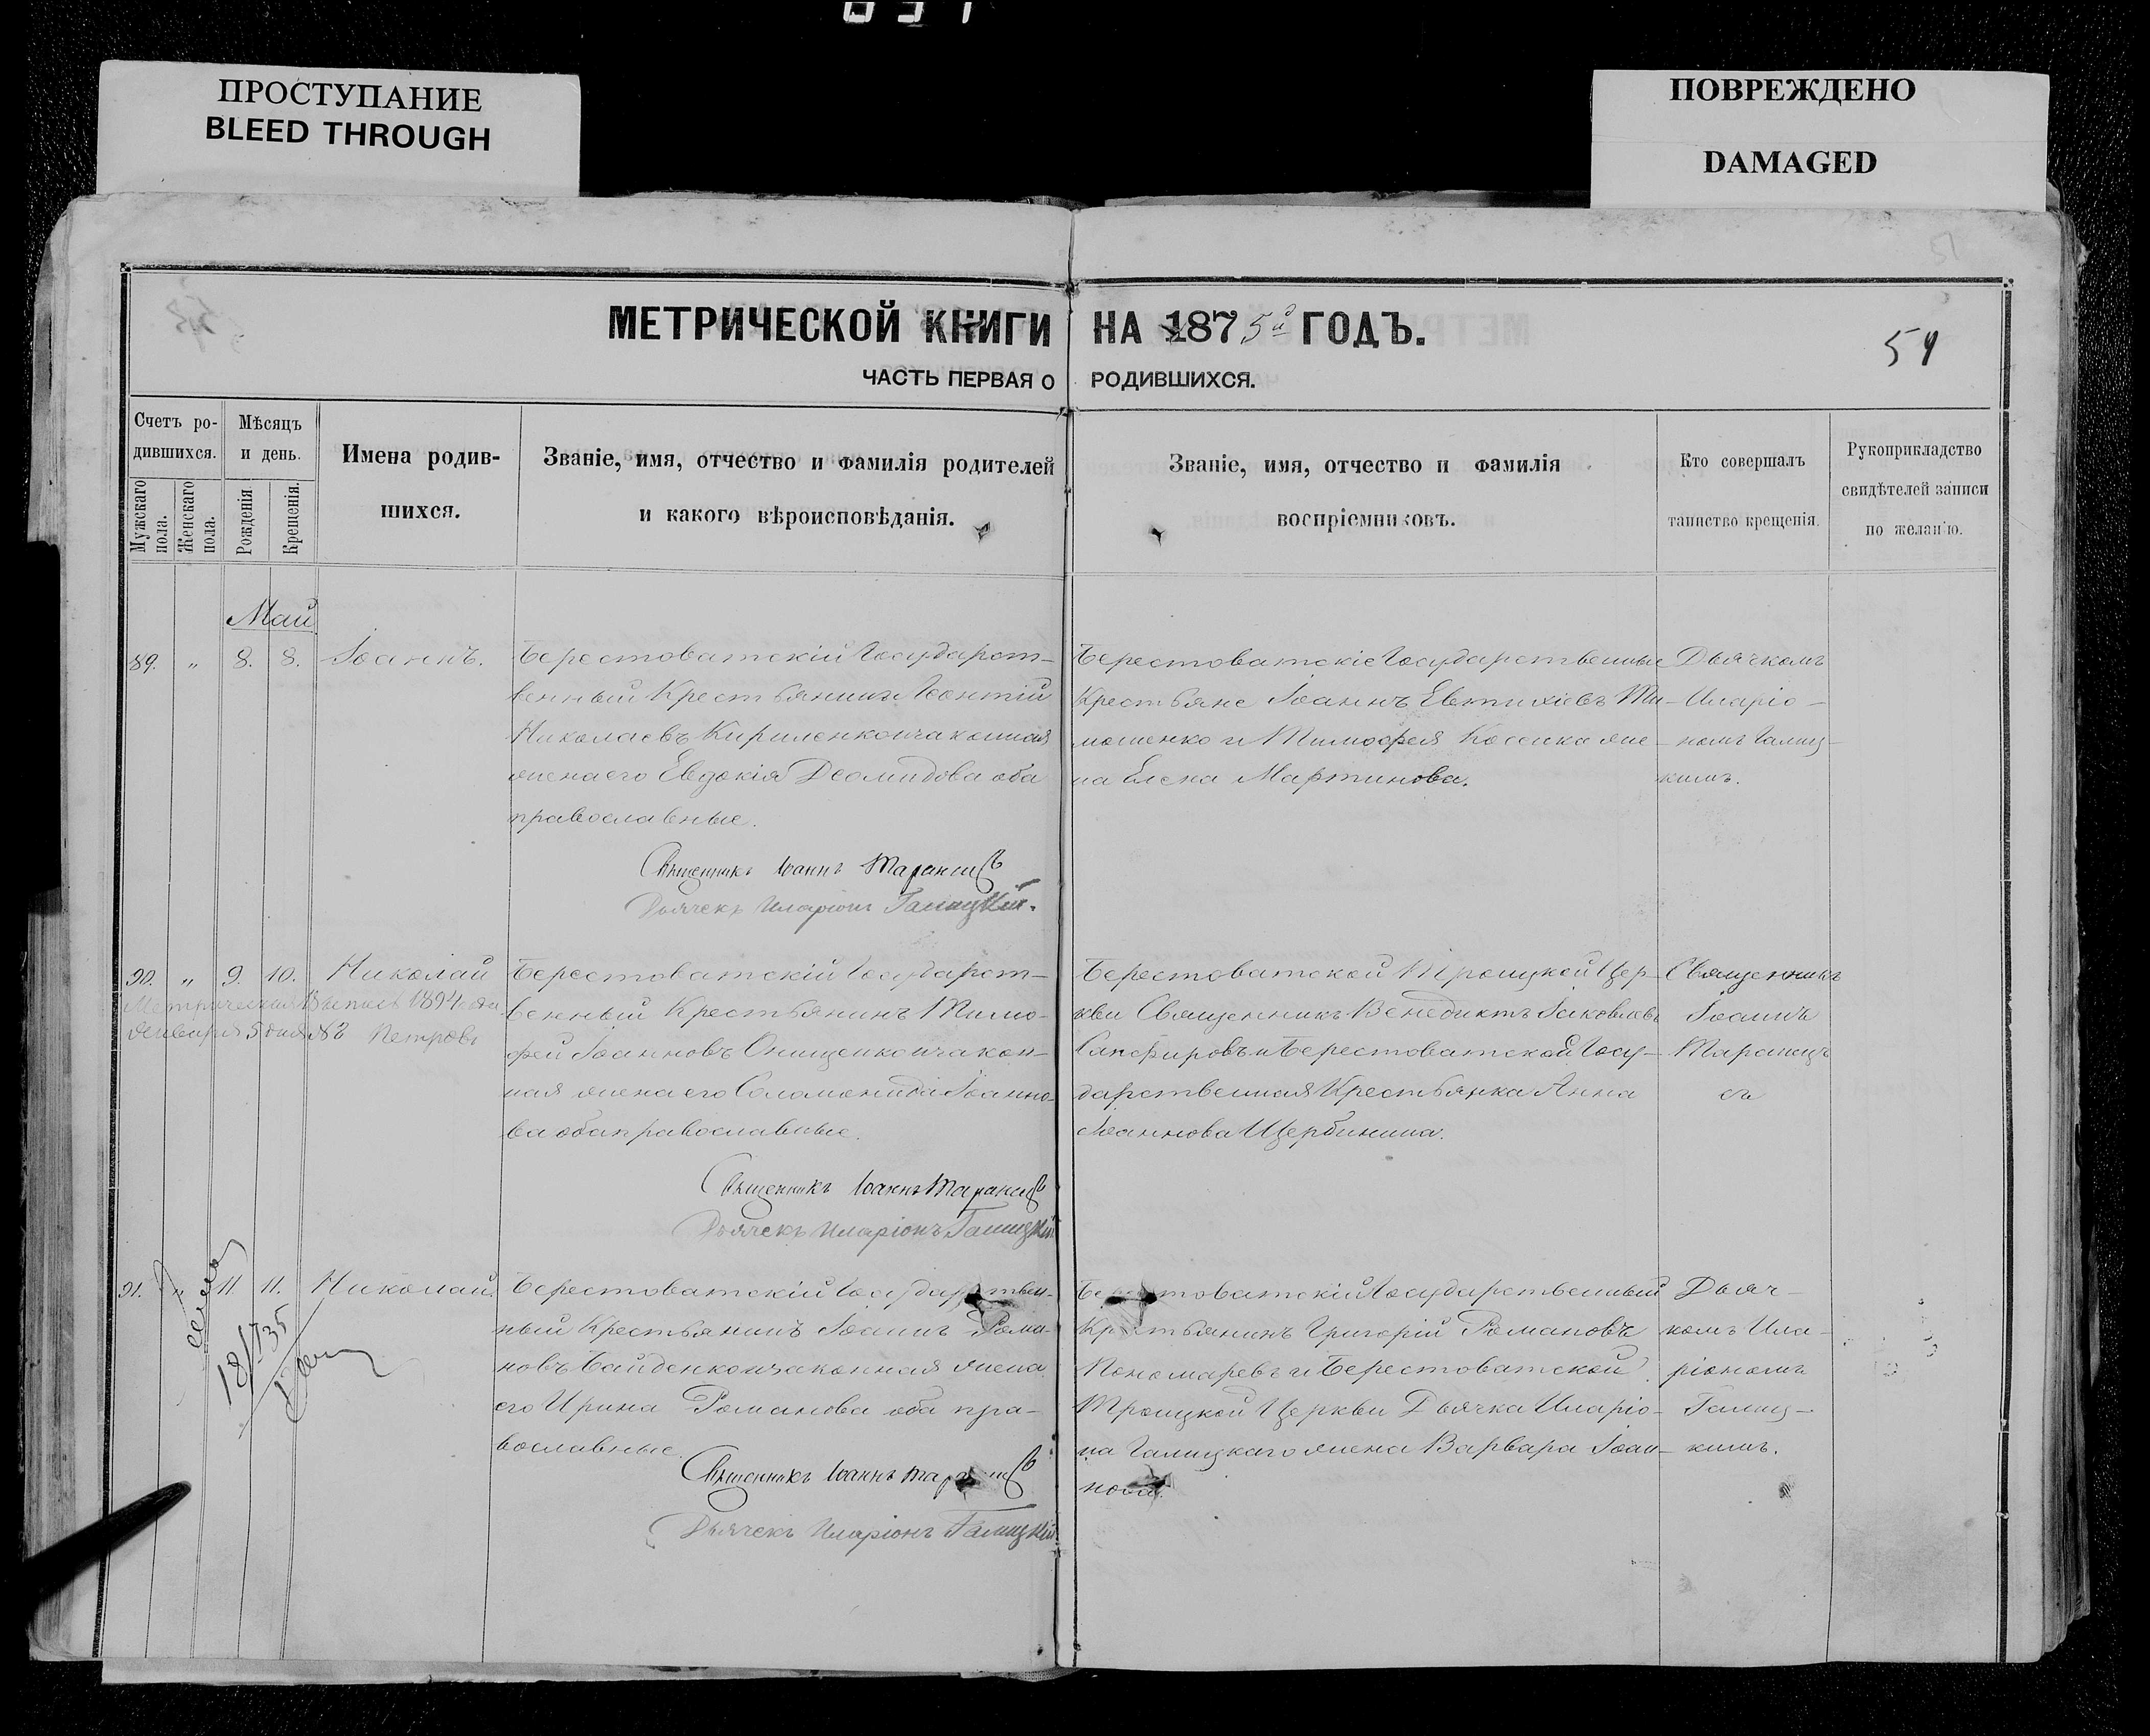 ПРОСТУПАНИЕ
BLEED THROUGH
ПОВРЕЖДЕНО
DAMAGED
МЕТРИЧЕСКОЙ КНИГИ НА 1875й ГОДЪ.
59
ЧАСТЬ ПЕРВАЯ О РОДИВШИХСЯ.
Счетъ ро-
дившихся.
Мужскаго пола.
Женскаго пола.
Мѣсяцъ
и день.
Рожденія.
Крещенія.
Имена родив-
шихся.
Званіе, имя, отчество и фамилія родителей
и какого вѣроисповѣданія.
Званіе, имя, отчество и фамилія
воспріемниковъ.
Кто совершалъ
таинство крещенія.
Рукоприкладство
свидѣтелей записи
по желанію.
Май
89. „ 8. 8. Іоаннъ.
Берестоватскій Государст-
венный Крестьянинъ
Николаевъ Кириленко и законная
жена его Евдокія Деомидова оба
православные.
Священникъ Іоаннъ
Дьячекъ Иларіонъ Галицкій.
Берестоватскіе Государственные
Крестьяне Іоаннъ Евтихіевъ Ти-
мошенко и Тимофея Косенка же-
на Елена Мартинова.
Дьячкомъ
Иларіо-
номъ Галиц-
кимъ.
90. „ 9. 10. Николай
Метрическая Выпись 1894 года
Января 5 дня №
Берестоватскій Государст-
венный Крестьянинъ Тимо-
фей Іоанновъ Онищенко и закон-
ная жена его Соломонида Іоанно-
ва оба православные.
Священникъ Іоаннъ
Дьячекъ Иларіонъ Галицкій
Берестоватской Троицкой Цер-
кви Священникъ Венедиктъ Іаковлевъ
Сапфировъ и Берестоватской Госу-
дарственная Крестьянка Анна
Іоаннова Щербинина.
Священникъ
Іоаннъ
91. „ 11. 11. Николай.
18/I 35
Берестоватскій Государствен-
ный Крестьянинъ Іоаннъ Рома-
новъ Байденко и законная жена
его Ирина Романова оба пра-
вославные.
Священникъ Іоаннъ
Дьячекъ Иларіонъ Галицкій.
Берестоватскій Государственный
Крестьянинъ Григорій Романовъ
Пономаревъ и Берестоватской
Троицкой Церкви Дьячка Иларіо-
на Галицкаго жена Варвара Іоан-
нова.
Дьяч-
комъ Ила-
ріономъ
Галиц-
кимъ.